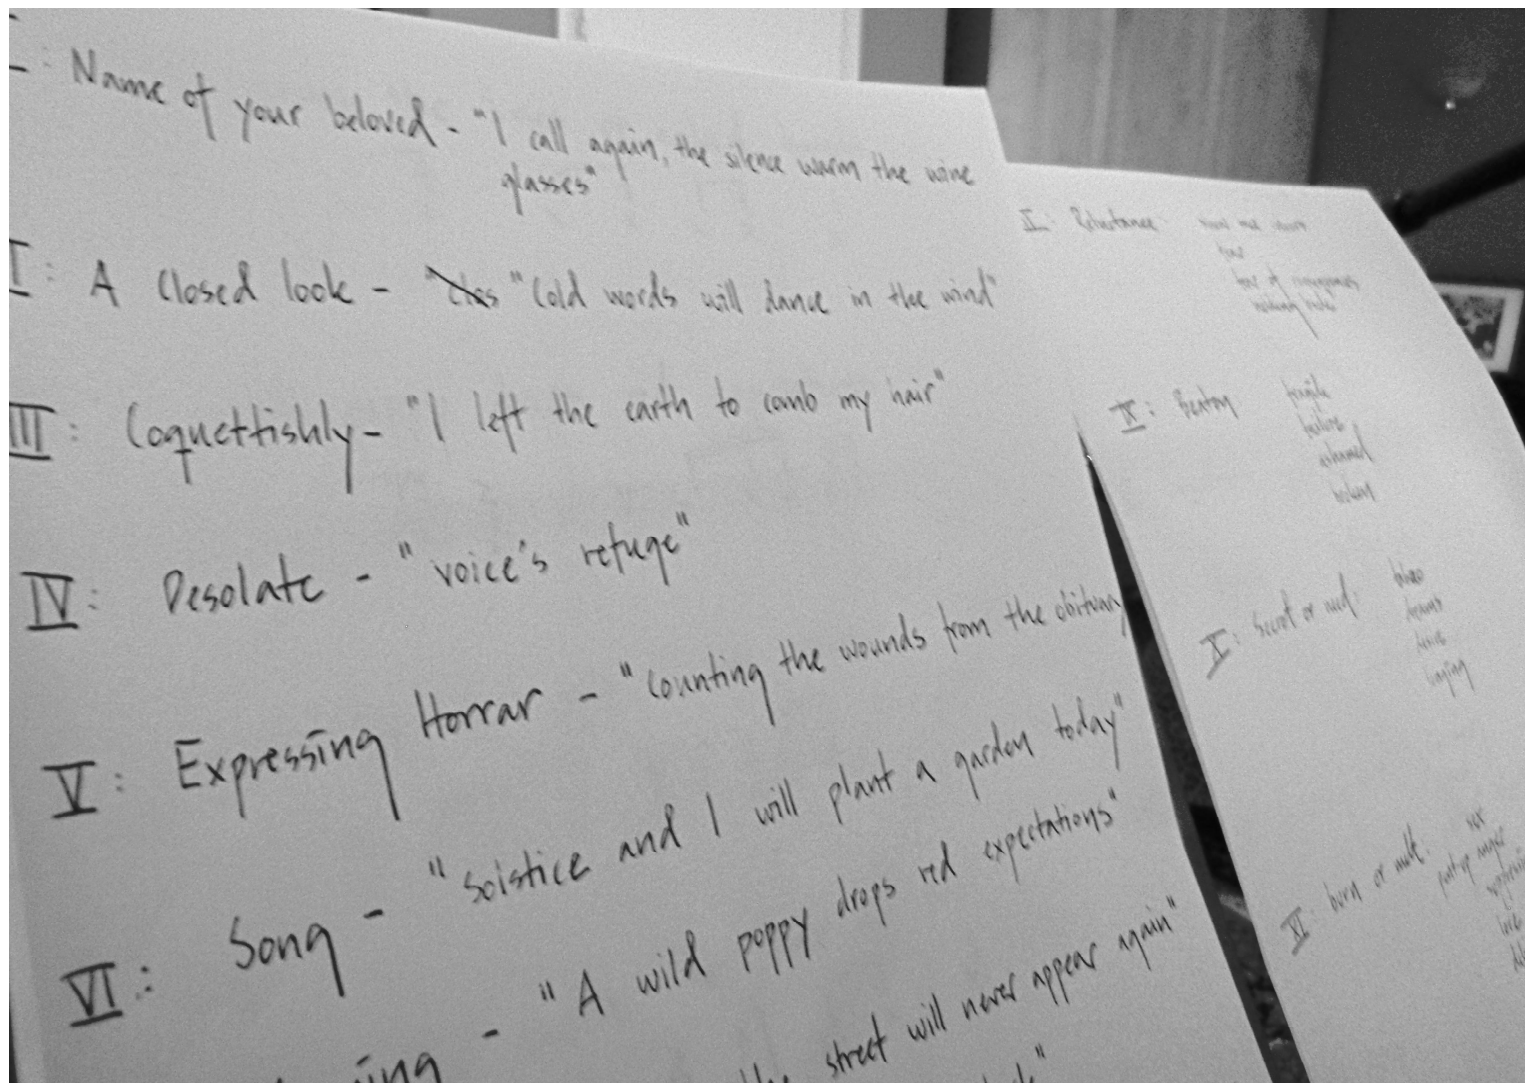 : Name of your beloved - "I call again, the silence warm the wine
glasses"
I: A Closed look - "Clos "Cold words will dance in the wind"
III: Coquettishly - "I left the earth to comb my hair"
IV: Desolate - "voice's refuge"
V: Expressing Horrar - "counting the wounds from the obituary
VI: Song - "solstice and I will plant a garden today"
- "A wild poppy drops red expectations"
street will never appear again"
Reluctance
IV: Beaten
fragile
failure
ashamed
broken
V: Secret or need:
desire
longing
VI: burn or melt.
sex
love